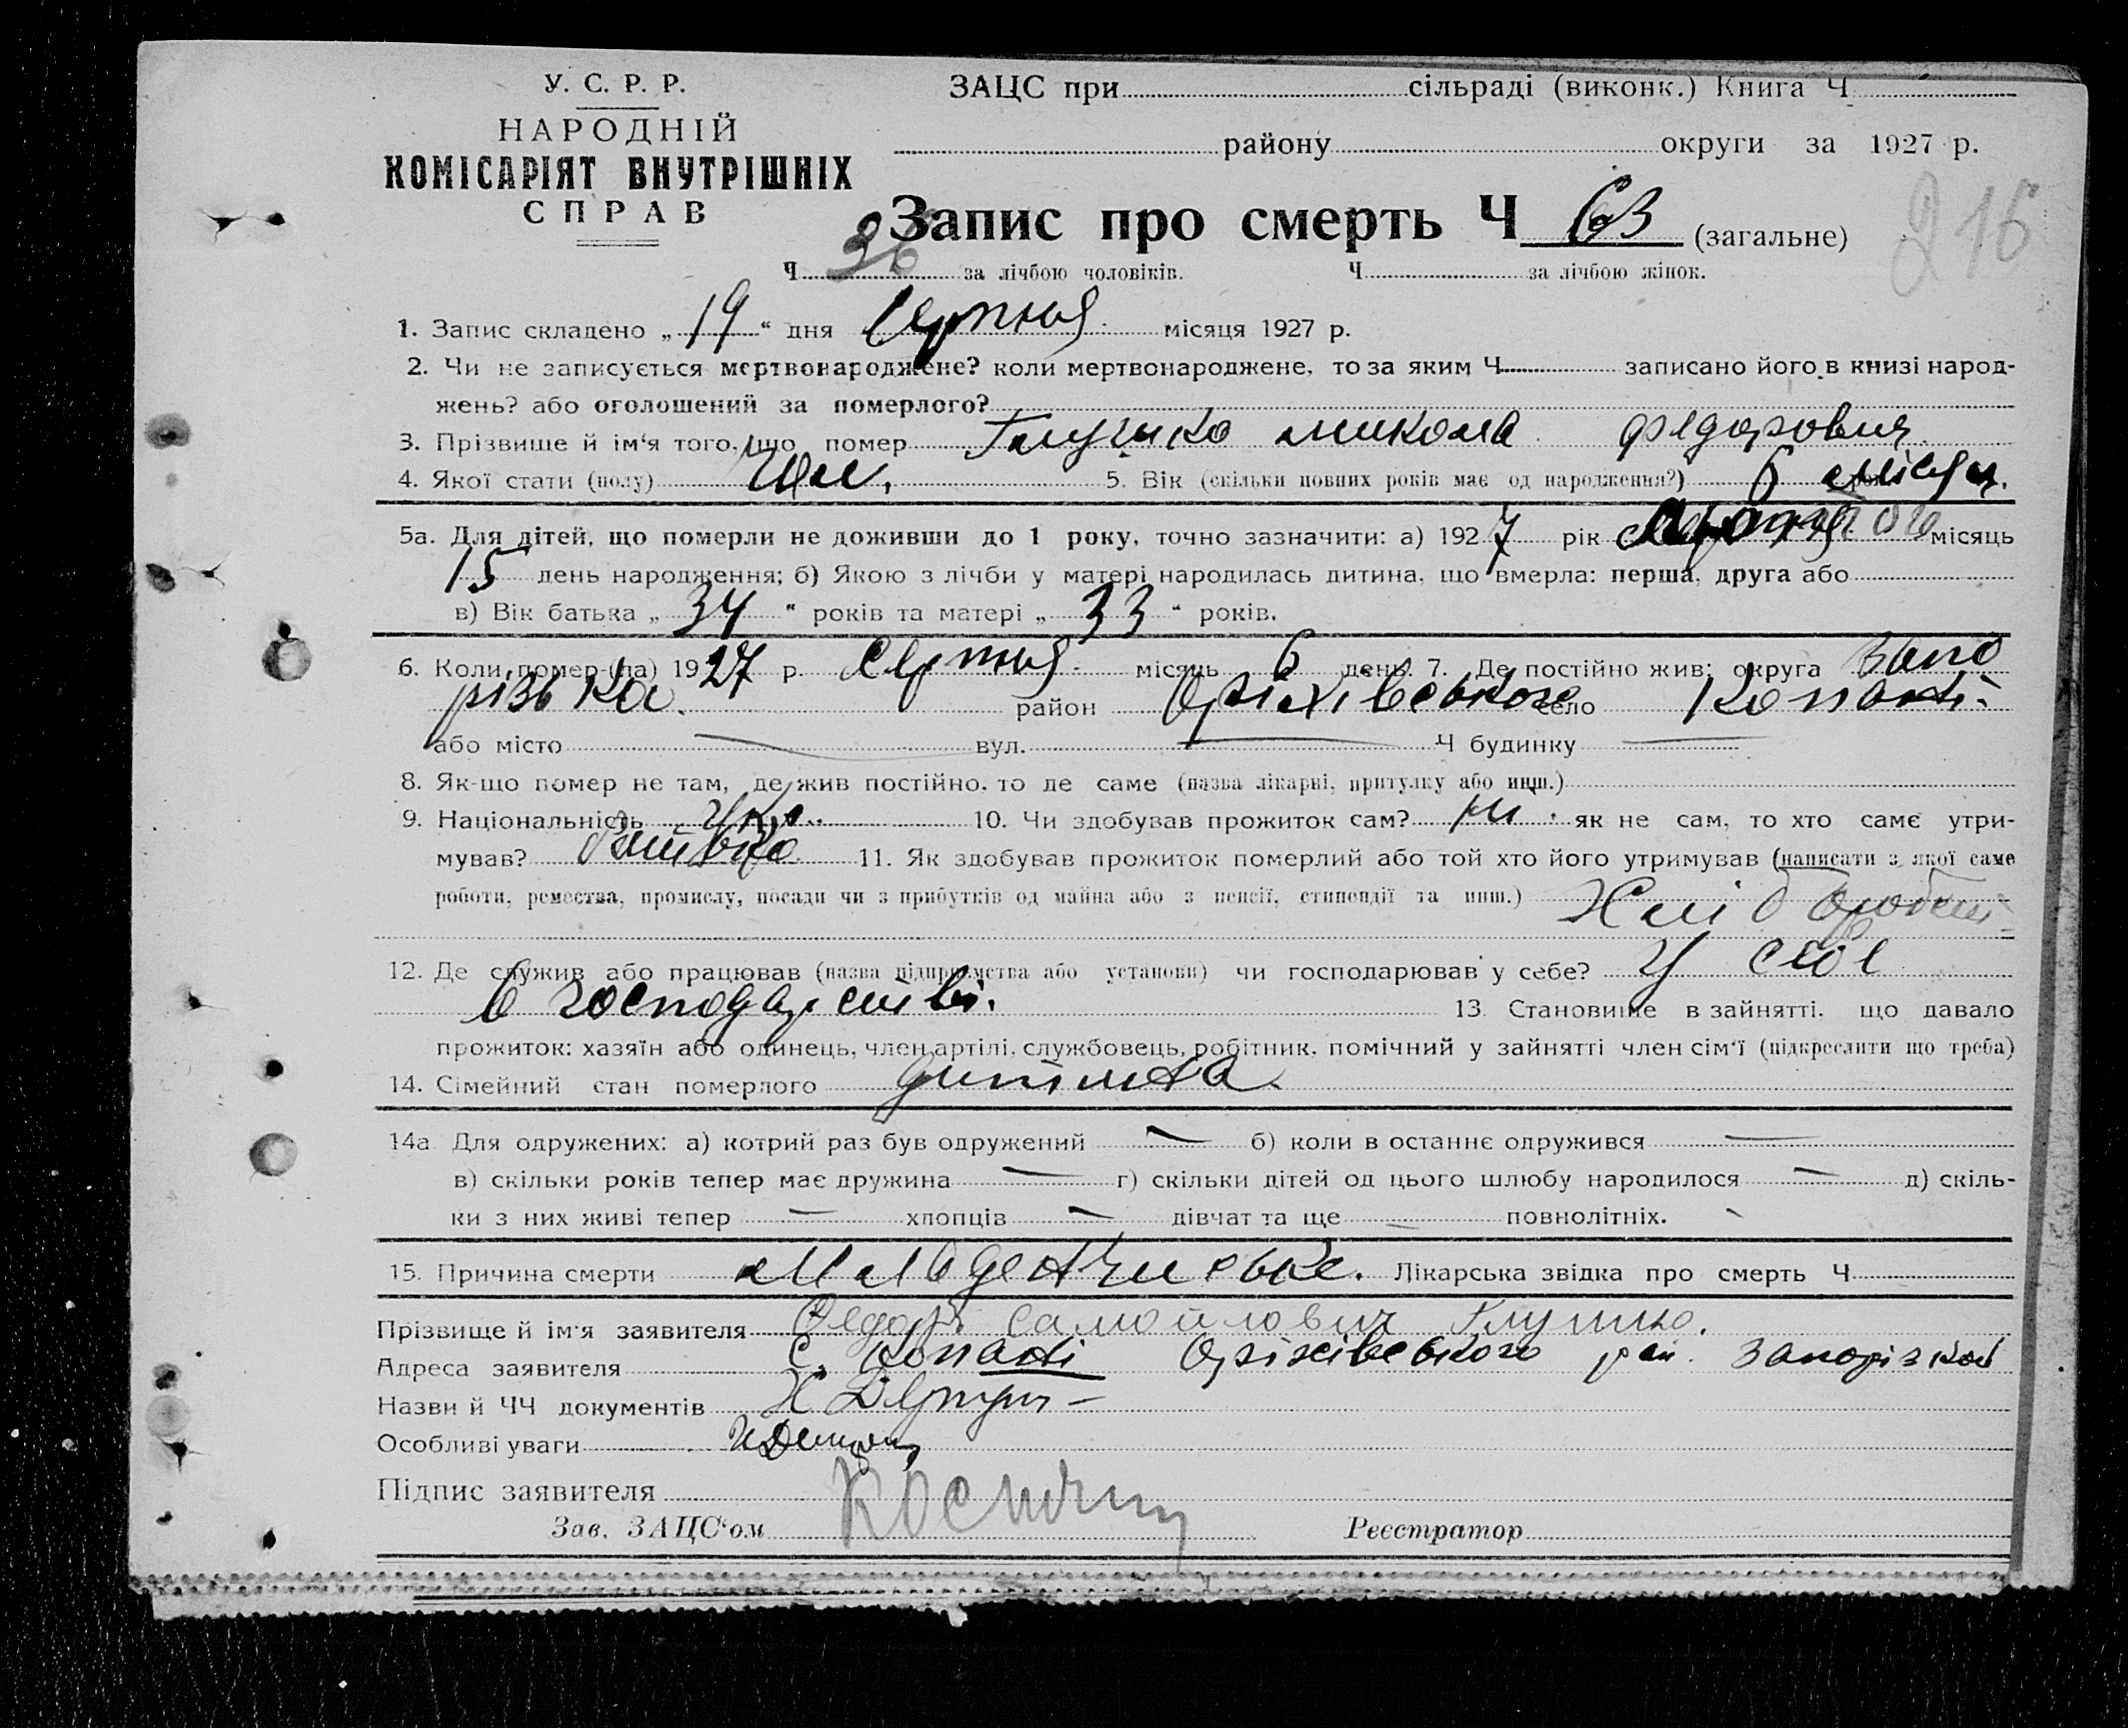 У. С. Р. Р.
НАРОДНІЙ
КОМІСАРІЯТ ВНУТРІШНІХ
СПРАВ
ЗАЦС при сільраді (виконк.) Книга Ч
району округи за 1927 р.
Запис про смерть Ч 63 (загальне)
216
Ч 36 за лічбою чоловіків. Ч за лічбою жінок.
1. Запис складено „ 19 “ дня Серпня місяця 1927 р.
2. Чи не записується мертвонароджене? коли мертвонароджене, то за яким Ч записано його в книзі народ-
жень? або оголошений за померлого?
3. Прізвище й ім‘я того, що помер микола федорович
4. Якої стати (полу) Чол. 5. Вік (скільки повних років має од народження?) 6 місяц.
5а. Для дітей, що померли не доживши до 1 року, точно зазначити: а) 1927 рік місяць
15 день народження; б) Якою з лічби у матері народилась дитина, що вмерла: перша, друга або
в) Вік батька „ 34 “ років та матері „ 33 “ років.
6. Коли помер (ла) 1927 р. Серпня місяць 6 день. 7. Де постійно жив: округа Запо
різька. район Оріхівського село Копані
або місто — вул. — Ч будинку —
8. Як-що помер не там, де жив постійно, то де саме (назва лікарні, притулку або инш.)
9. Національність Укр. 10. Чи здобував прожиток сам? ні. як не сам, то хто саме утри-
мував? батько 11. Як здобував прожиток померлий або той хто його утримував (написати з якої саме
роботи, ремества, промислу, посади чи з прибутків од майна або з пенсії, стипендії та инш.) Хлібороб
12. Де служив або працював (назва підприємства або установи) чи господарював у себе? У свої
в господарстві. 13. Становище в зайнятті, що давало
прожиток: хазяїн або одинець, член артілі, службовець, робітник, помічний у зайнятті член сім‘ї (підкреслити що треба)
14. Сімейний стан померлого дитина.
14а Для одружених: а) котрий раз був одружений — б) коли в останнє одружився —
в) скільки років тепер має дружина — г) скільки дітей од цього шлюбу народилося — д) скіль-
ки з них живі тепер — хлопців — дівчат та ще — повнолітніх.
15. Причина смерти младенческе. Лікарська звідка про смерть Ч
Прізвище й ім‘я заявителя Федор Самойлович Глушко.
Адреса заявителя С. Копані Оріхівського рай. Запорізької
Назви й ЧЧ документів
Особливі уваги
Підпис заявителя
Зав. ЗАЦС‘ом Реєстратор